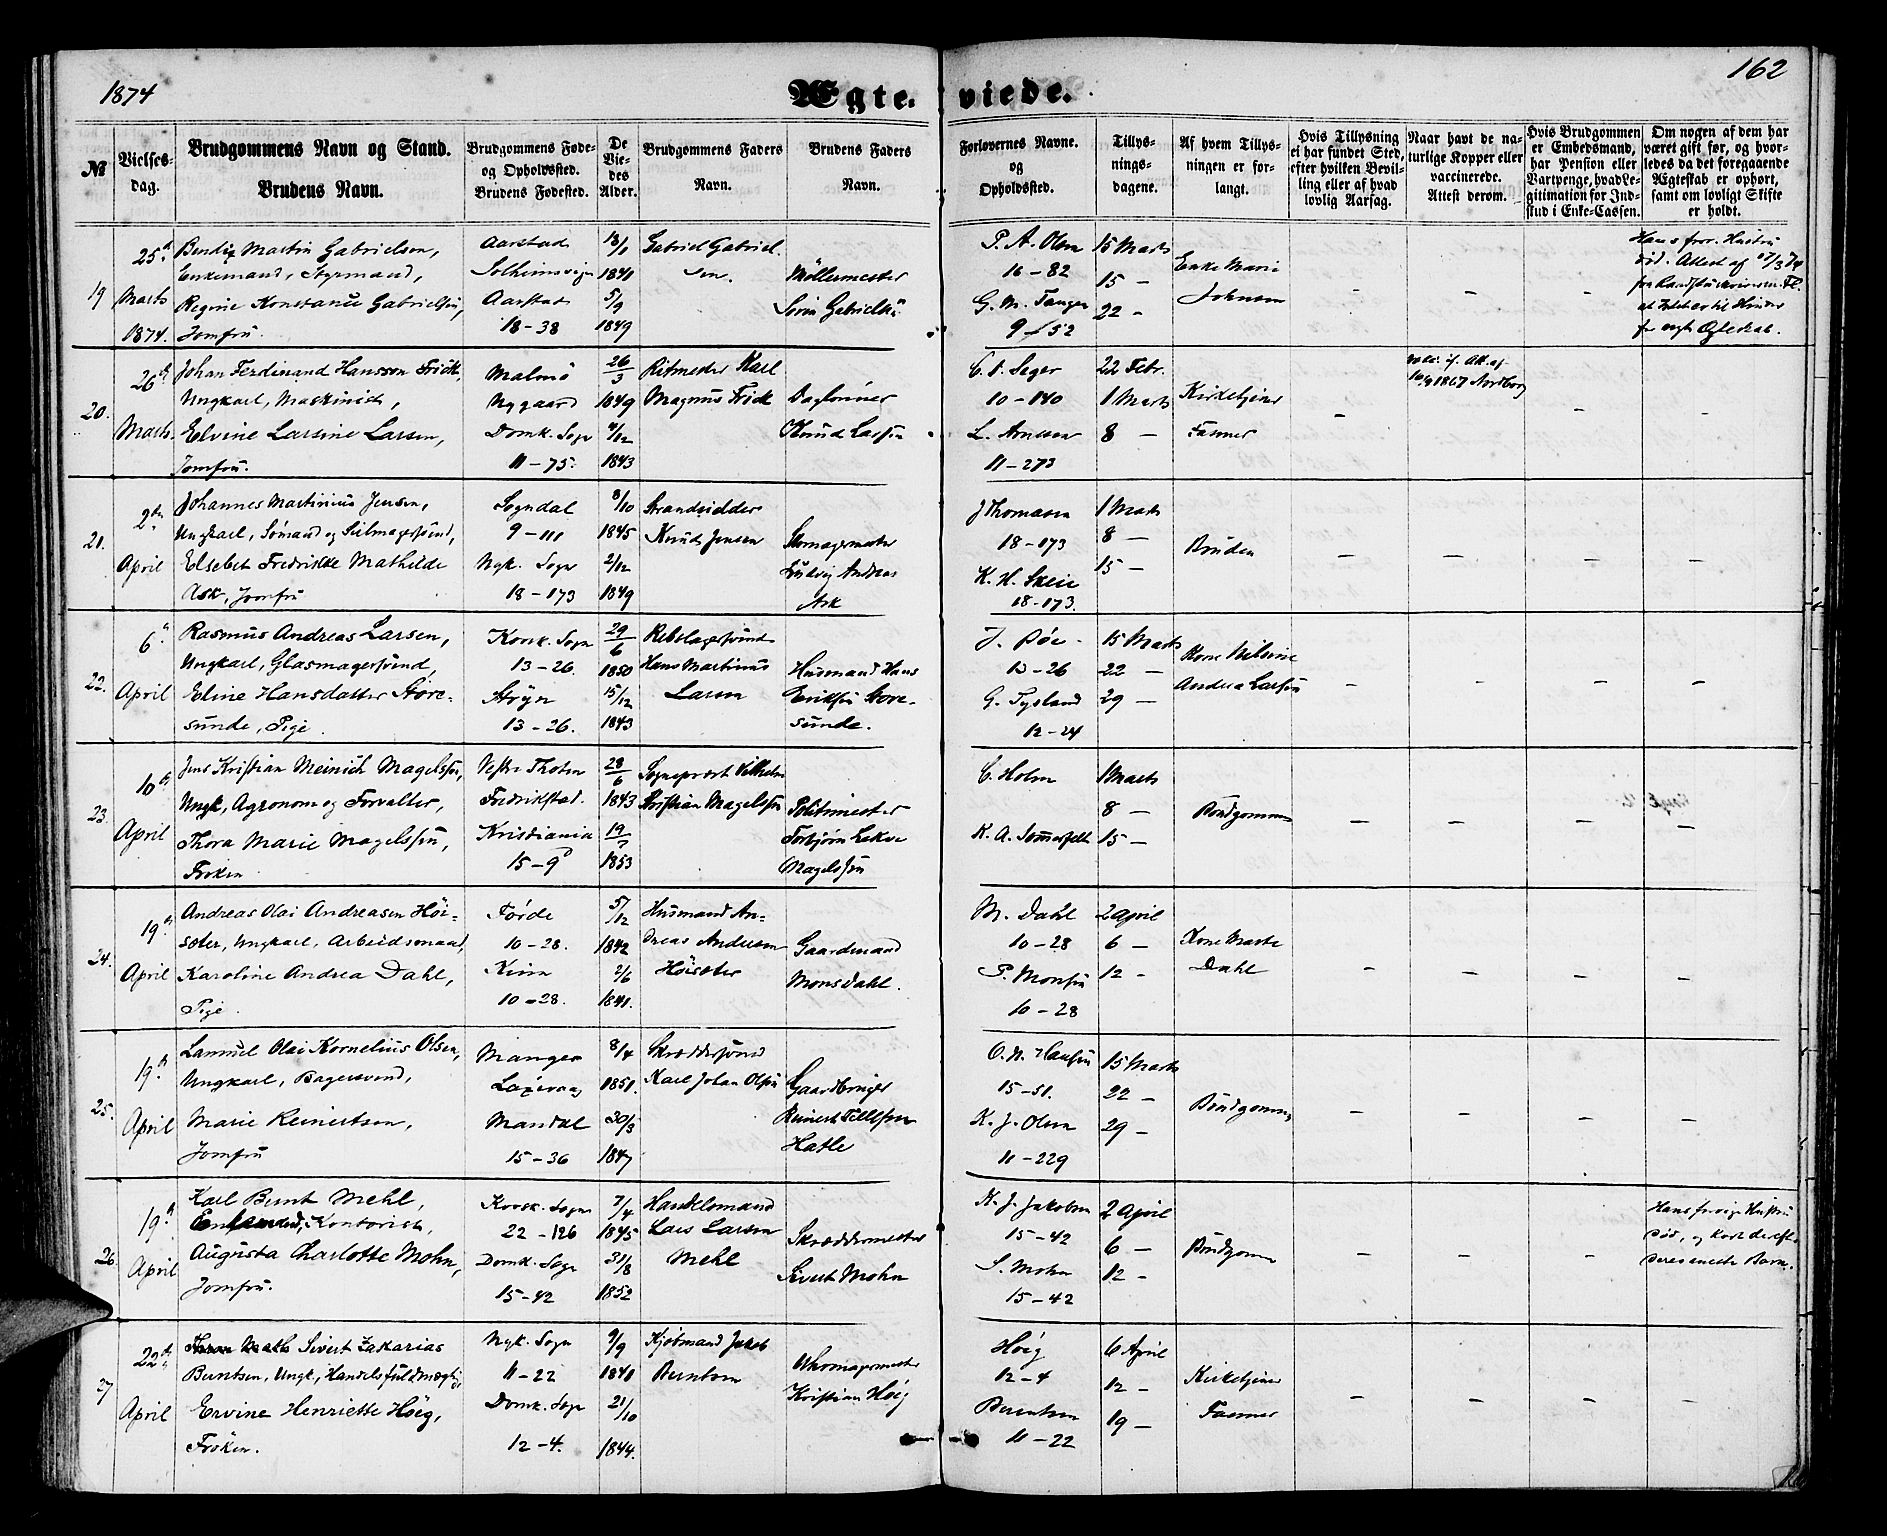 1874
Ægteviede.
162
№
Vielsesdag.
Brudgommens Navn og Stand.
Brudens Navn.
Brudgommens Føde- og Opholdssted.
Brudens Fødested.
De Viedes Alder.
Brudgommens Faders Navn.
Brudens Faders Navn.
Forlovernes Navne.
og
Opholdssted.
Tillysningsdagene.
Af hvem Tillysningen er forlangt.
Hvis Tillysning ei har fundet Sted, efter hvilken Bevilling eller af hvad lovlig Aarsag.
Naar havt de naturlige Kopper eller vaccinerede. Attest derom.
Hvis Brudgommen er Embedsmand, har Pension eller Vartpenge, hvad Legitimation for Indskud i Enke-Cassen.
Om nogen af dem har været gift før, og hvorledes da det foregaaende Ægteskab er ophørt, samt om lovligt Skifte er holdt.
19
25de Marts 1874.
Bendix Martin Gabrielsen,
Enkemand, Styrmand,
Regine Konstance Gabrielsen,
Jomfru.
Aarstad
Solheimsvigen
Aarstad
18-38
18/1 1841
5/9 1849
Gabriel Gabrielsen
Møllermester
Søren Gabrielsen
P. A. Olsen
16-82
G. M. Tanger
9-52
15 Marts
15 —
22 —
Enke Marie
Johnsen
20.
26de Marts.
Johan Ferdinand Hansson Frick,
Ungkarl, Maskinist,
Elvine Larsine Larsen,
Jomfru.
Malmö
Nygaard
Domk. Sogn
11-75.
26/3 1849
4/12 1843
Ritmester Karl
Magnus Frick
Daglønner
Knud Larsen
C. S. Seger
10-140
L. Arnesen
11-273
22 Febr.
1 Marts
8 —
Kirketjener
Fasmer
vacc. if. Att. af
1867 Nordborg
21.
2den April
Johannes Martinius Jensen,
Ungkarl, Sømand og Seilmagersvend,
Elsebet Fredrikke Mathilde
Ask, Jomfru
Sogndal
9-111
Nyk. Sogn
18-173
8/10 1845
2/12 1849
Strandsidder
Knud Jensen
Skomagermester
Ludvig Andreas
Ask
J Thomasen
18-173
K. H. Skeie
18-173.
1 Marts
8 —
15 —
Bruden
22.
6te April
Rasmus Andreas Larsen,
Ungkarl, Glasmagersvend,
Eline Hansdatter Støresunde, Pige.
Korsk. Sogn
13-26.
Stryn
13-26.
29/6 1850
15/12 1843
Rebslagersvend
Hans Martinius
Larsen
Husmand Hans
Eriksen Storesunde.
J. Böe
13-26
G. Tysland
12-24
15 Marts
22 —
29 —
Kone Nilsine
Andrea Larsen
23.
10de April
Jens Kristian Meinich Magelssen,
Ungk, Agronom og Forvalter,
Thora Marie Magelssen,
Frøken
Vestre Thoten
Fredrikstad.
Kristiania
15-9
28/6 1843
19/7 1853
Sogneprest Vilhelm
Kristian Magelssen
Politimester
Torbjørn Laken
Magelssen
C. Holm
K. A. Sommerfelt
1 Marts
8 —
15 —
Brudgommen
24.
19de April
Andreas Olai Andreasen Höisæter, Ungkarl, Arbeidsmand,
Karoline Andrea Dahl,
Pige.
Førde
10-28.
Kinn
10-28.
5/12 1842
2/6 1841.
Husmand Andreas Andersen
Höisæter
Gaardmand
Mons Dahl.
M. Dahl
10-28
P. Monsen
10-28
2 April
6 —
12 —
Kone Marte
Dahl
25.
19de April
Samuel Olai Kornelius Olsen,
Ungkarl, Bagersvend,
Marie Reinertsen,
Jomfru
Manger
Laxevaag
Mandal
15-36
8/4 1851.
30/3 1847
Skræddersvend
Karl Johan Olsen
Gaardbruger
Reinert Tellefsen
Hatle
O. N. Hansen
15-51.
K. J. Olsen
11-229
15 Marts
22 —
29 —
Brudgommen
26.
19de April
Karl Bernt Mehl,
Enkemand, Kontorist,
Augusta Charlotte Mohn,
Jomfru.
Korsk. Sogn
22-126
Domk. Sogn
15-42
7/4 1845
31/8 1852
Handelsmand
Lars Larsen
Mehl
Skræddermester
Sivert Mohn
K. J. Jakobsen
15-42
S. Mohn
15-42
2 April
6 —
12 —
Brudgommen
Hans forrige Hustru
død, og kort derefter
deres eneste Barn.
27
22de April
Sivert Zakarias
Berntsen, Ungk, Handelsfuldmægtig
Ervine Henriette Höeg,
Frøken.
Nyk. Sogn
11-22
Domk. Sogn
12-4.
9/9 1841
21/10 1844.
Kjøbmand Jakob
Berntsen
Uhrmagermester
Kristian Höeg
Höeg
12-4
Berentsen
11-22
6 April
12 —
19 —
Kirketjener
Fasmer